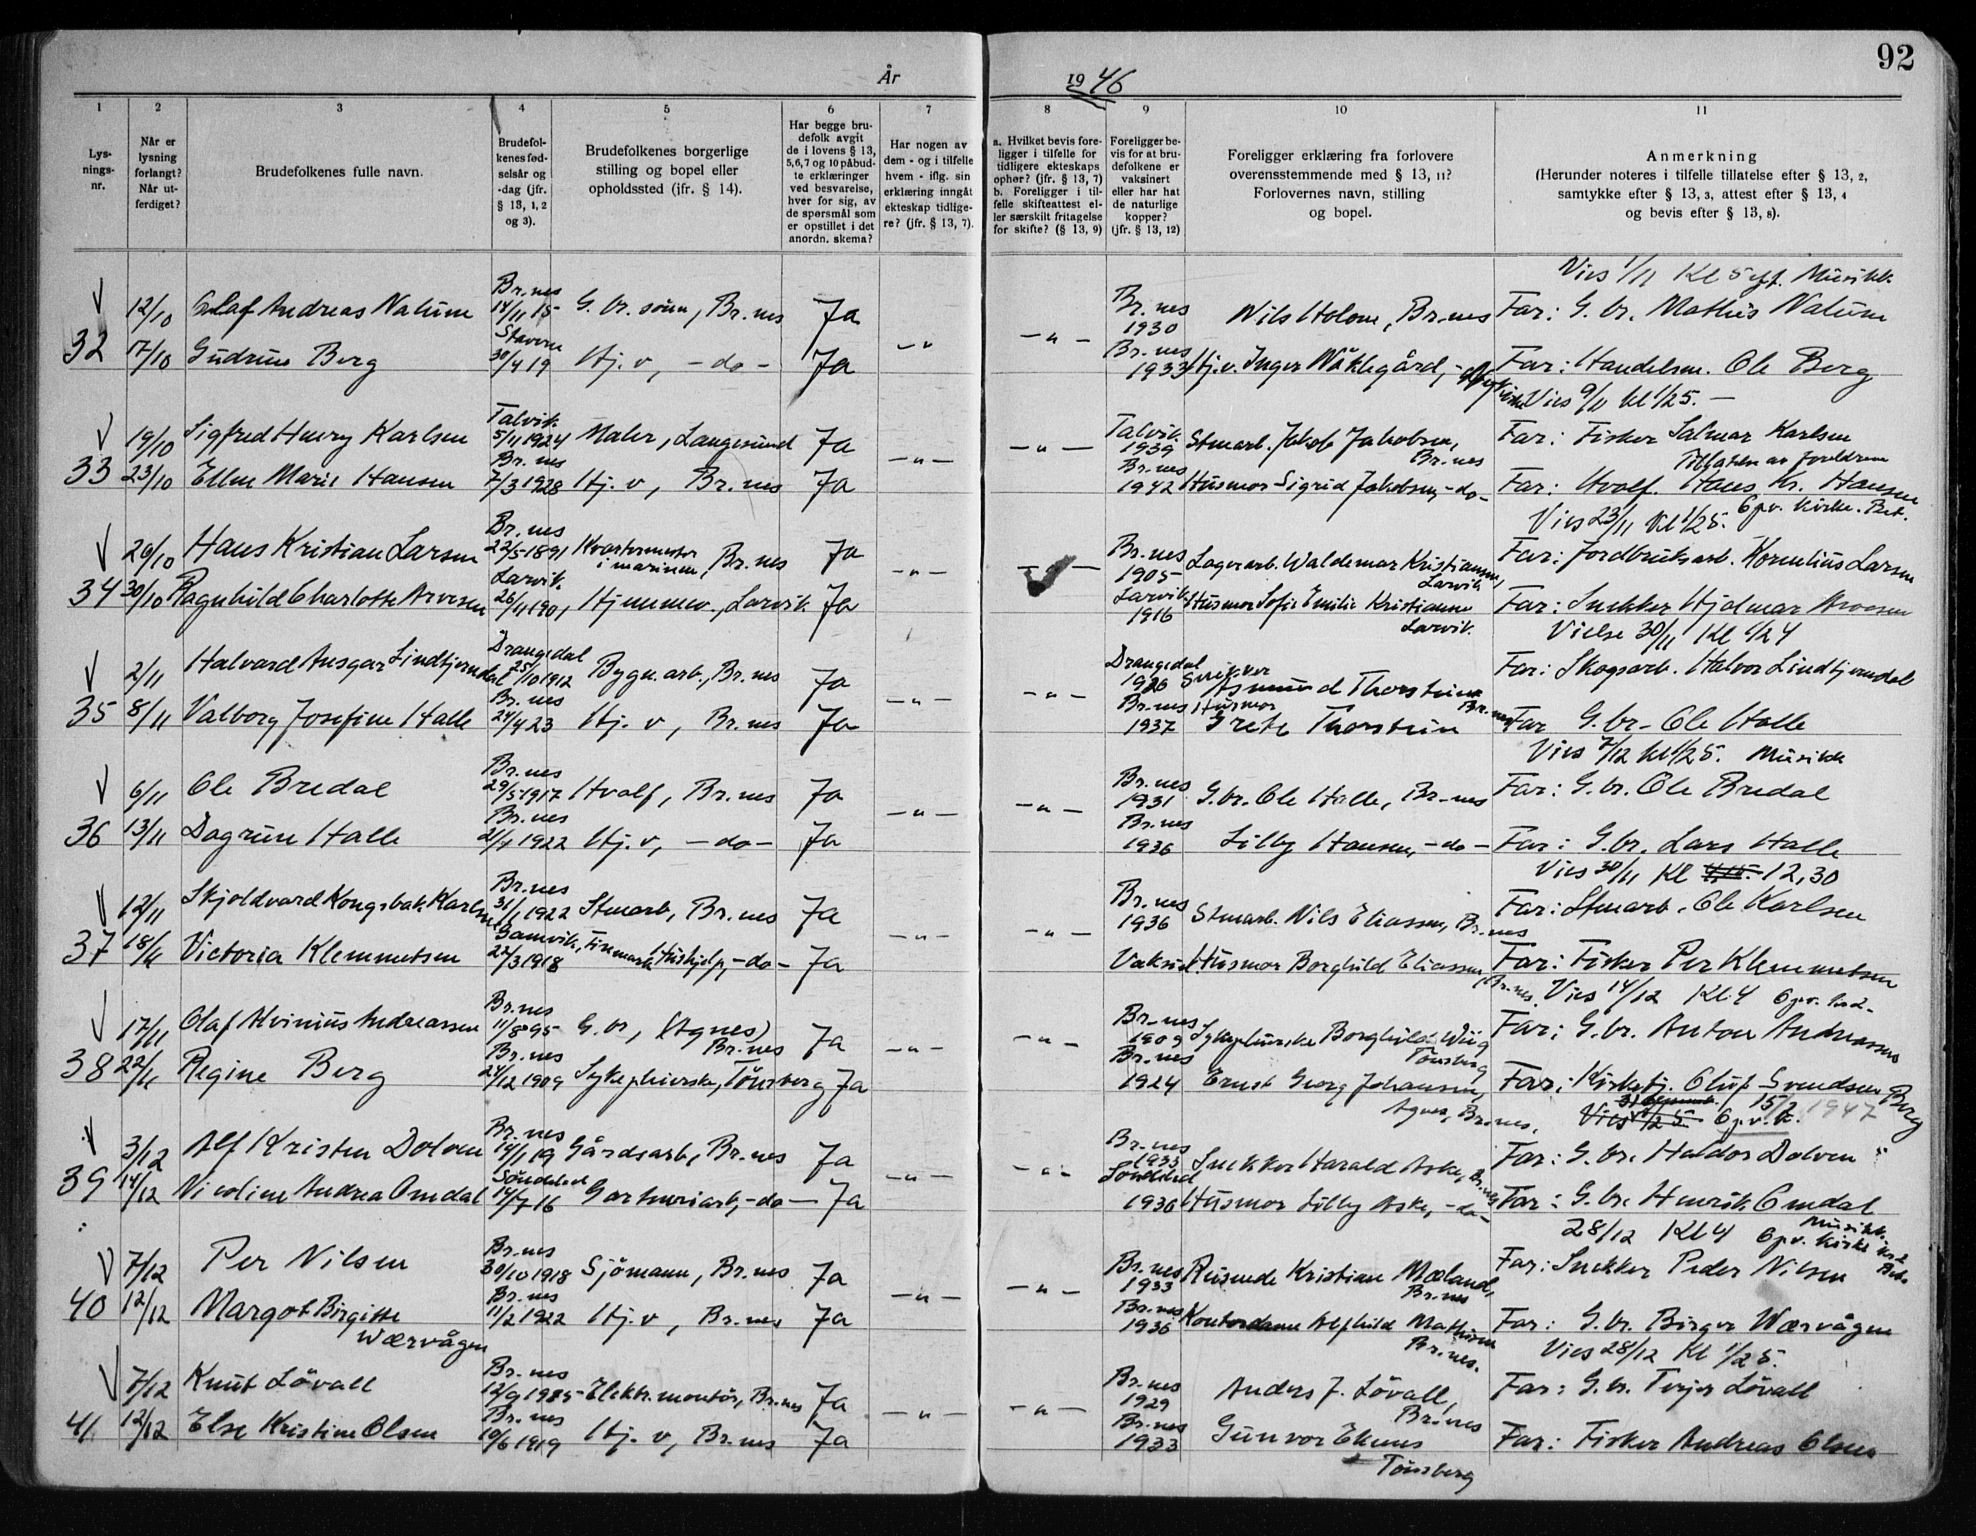 92
År 1946
1 2 3 4 5 6 7 8 9 10 11
Lys-
nings-
nr.
Når er
lysning
forlangt?
Når ut-
ferdiget?
Brudefolkenes fulle navn.
Brudefol-
kenes fød-
selsår og
-dag (jfr.
§ 13, 1, 2
og 3).
Brudefolkenes borgerlige
stilling og bopel eller
opholdssted (jfr. § 14).
Har begge bru-
defolk avgit
de i lovens § 13,
5,6,7 og 10 påbud-
te erklæringer
ved besvarelse,
hver for sig, av
de spørsmål som
er opstillet i det
anordn. skema?
Har nogen av
dem - og i tilfelle
hvem - iflg. sin
erklæring inngått
ekteskap tidlige-
re? (jfr. § 13, 7).
a. Hvilket bevis fore-
ligger i tilfelle for
tidligere ekteskaps
ophør? (jfr. § 13, 7)
b. Foreligger i til-
felle skifteattest el-
ler særskilt fritagelse
for skifte? (§ 13, 9)
Foreligger be-
vis for at bru-
defolkene er
vaksinert
eller har hat
de naturlige
kopper?
(jfr. § 13, 12)
Foreligger erklæring fra forlovere
overensstemmende med § 13, 11?
Forlovernes navn, stilling
og bopel.
Anmerkning
(Herunder noteres i tilfelle tillatelse efter § 13, 2,
samtykke efter § 13, 3, attest efter § 13, 4
og bevis efter § 13, 8).
Vies 1/11 Kl 5 eff. Musikk
12/10 Olaf Andreas Nalum Br.nes 14/11 15 G. br. sønn, Br.nes Ja Br.nes 1930 Nils Holom, Br.nes Far: G. br. Mathis Nalum
32 17/10 Gudrun Berg Stavern 30/4 19 Hj. v, - do - Ja - " - - " - Br.nes 1933 Hj.v. Inger Far: Handelsm. Ole Berg
Vies 9/11 kl 1/2 5. -
19/10 Sigfred Henry Karlsen Talvik 5/11 1924 Maler, Langesund Ja Talvik 1939 Stenarb. Jakob Jakobsen, Br.nes Far: Fisker Salmar Karlsen
Tillatelse av foreldrene
33 23/10 Ellen Marie Hansen Br.nes 7/3 1928 Hj. v, Br.nes Ja - " - - " - Br.nes 1942 Husmor Sigrid Jakobsen, - do - Far: Hvalf. Hans Kr. Hansen
Vies 23/11 Kl 1/2 5. 6 pv. kirke. Bet.
26/10 Hans Kristian Larsen Br.nes 22/5-1891 Kvartermester i marinen, Br.nes Ja Br.nes 1905 Lagerarb. Waldemar Kristiansen, Larvik Far: Jordbruksarb. Kornelius Larsen
34 30/10 Ragnhild Charlotte Arvesen Larvik 26/4 1901 Hjemmev., Larvik Ja - " - Larvik 1916 Husmor Sofie Emilie Kristiansen Larvik. Far: Snekker Hjalmar Arvesen
Vielse 30/11 Kl 1/2 4
2/11 Halvard Ansgar Lindtjerndal Drangedal 25/10 1912 Bygn. arb., Br.nes Ja Drangedal 1926 Snekker Asmund Thorstein Br.nes Far: Skogsarb. Halvor Lindtjerndal
35 8/11 Valborg Josefine Halle Br.nes 24/4 23 Hj. v, Br.nes Ja - " - - " - Br.nes 1937 Husmor Grete Thorstein Far G. br. Ole Halle
Vies 7/12 kl 1/2 5. Musikk
6/11 Ole Bredal Br.nes 29/5-1917 Hvalf, Br.nes Ja Br.nes 1931 G. br. Ole Halle, Br.nes Far: G. br. Ole Bredal
36 13/11 Dagrun Halle Br.nes 21/4 1922 Hj. v, - do - Ja - " - - " - Br.nes 1936 Lilly Hansen, - do - Far: G. br. Lars Halle
Vies 30/11 Kl 12,30
12/11 Skjoldvard Kongsbak Karlsen Br.nes 31/1 1922 Stenarb, Br.nes Ja Br.nes 1936 Stenarb. Nils Eliassen, Br.nes Far: Stenarb. Ole Karlsen
37 18/11 Victoria Klemmetsen Gamvik, Finmark 22/3 1918 Hushjelp, - do - Ja - " - - " - Vaksin Husmor Borghild Eliassen, Br.nes. Far: Fisker Per Klemmetsen
Vies 14/12 Kl. 4 6 pv.
17/11 Olaf Alvinius Andreassen Br.nes 11/8 95 G. br, (Agnes) Br.nes Ja Br.nes 1909 Sykepleierske Borghild Wiig Tønsberg Far: G. br. Anton Andreassen
38 22/11 Regine Berg Br.nes 24/12 1909 Sykepleierske, Tønsberg Ja - " - - " - Br.nes 1924 Ernst Georg Johansen, Agnes, Br.nes. Far: Kirketj. Oluf Svendsen Berg
15/2 1947
3/12 Alf Kristen Dolven Br.nes 14/1 19 Gårdsarb, Br.nes Ja Br.nes 1933 Snekker Harald Aske, Br.nes Far: G. br. Haldor Dolven
39 14/12 Nicoline Andrea Omdal Søndeled 14/7 16 Garneriarb, - do - Ja - " - - " - Søndeled 1930 Husmor Lilly Aske, - do - Far: G. br. Henrik Omdal
28/12 Kl 4 6 pv. kirke Musikk
7/12 Per Nilsen Br.nes 30/10 1918 Sjömann, Br.nes Ja Br.nes 1933 Reisende Kristian Mæland, Br.nes Far: Snekker Peder Nilsen
40 12/12 Margot Birgitte Wærvågen Br.nes 11/2 1922 Hj. v, Br.nes Ja - " - - " - Br.nes 1936 Kontordame Alfhild Mathisen Br.nes. Far: G. br. Birger Wærvågen
Vies 28/12 Kl 1/2 5.
7/12 Knut Lövall Br.nes 12/9 1915 Elektr. montör, Br.nes Ja Br.nes 1929 Anders J. Lövall, Br.nes Far: G. br. Terjer Lövall
41 12/12 Else Kristine Olsen Br.nes 10/6 1919 Hj. v, Br.nes Ja - " - - " - Br.nes 1933 Gunvor Ekenes Tønsberg Far: Fisker Andreas Olsen